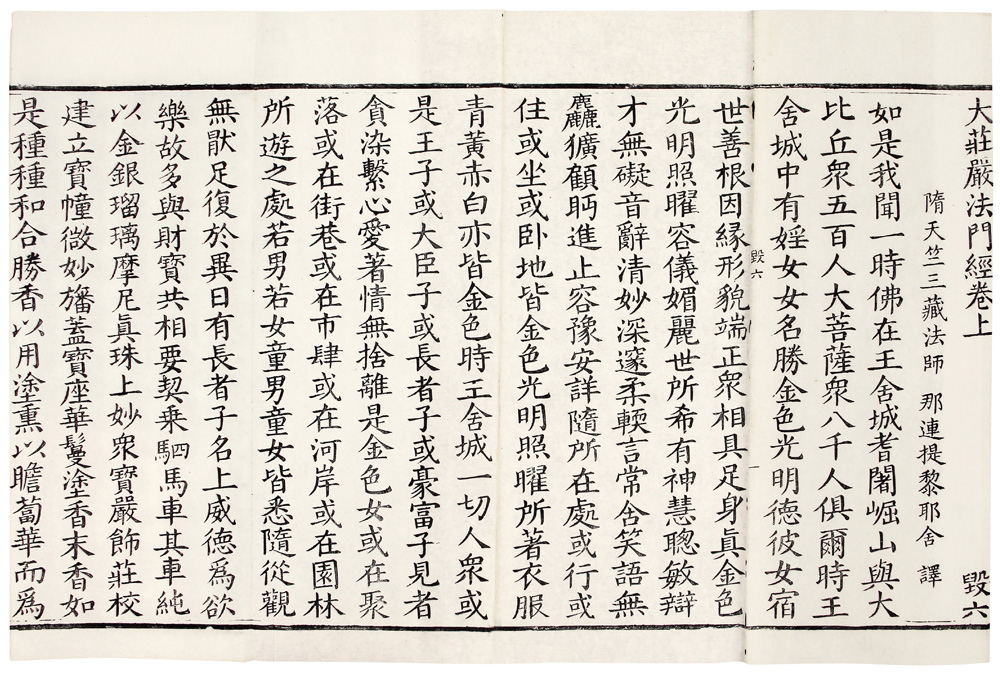 大莊嚴法門經卷上 毀六
隋天竺三藏法師 那連提黎耶舍 譯
如是我聞一時佛在王舍城耆闍崛山與大
比丘衆五百人大菩薩衆八千人俱爾時王
舍城中有婬女女名勝金色光明德彼女宿
毀六 一
世善根因緣形貌端正衆相具足身眞金色
光明照曜容儀媚麗世所希有神慧聰敏辯
才無礙音辭清妙深邃柔輭言常含笑語無
麤獷顧眄進止容豫安詳隨所在處或行或
住或坐或卧地皆金色光明照曜所著衣服
青黃赤白亦皆金色時王舍城一切人衆或
是王子或大臣子或長者子或豪富子見者
貪染繫心愛著情無捨離是金色女或在聚
落或在街巷或在市肆或在河岸或在園林
所遊之處若男若女童男童女皆悉隨從觀
無猒足復於異日有長者子名上威德爲欲
樂故多與財寶共相要契乘駟馬車其車純
以金銀瑠璃摩尼眞珠上妙衆寶嚴飾莊校
建立寶幢微妙旛蓋寶座華鬘塗香末香如
是種種和合勝香以用塗熏以瞻蔔華而爲